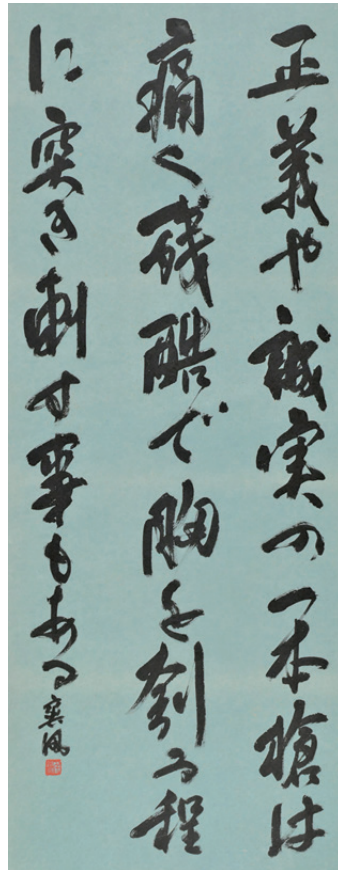 正義や誠実の一本槍は
痛く残酷で胸を刳る程
に突き刺す事もある